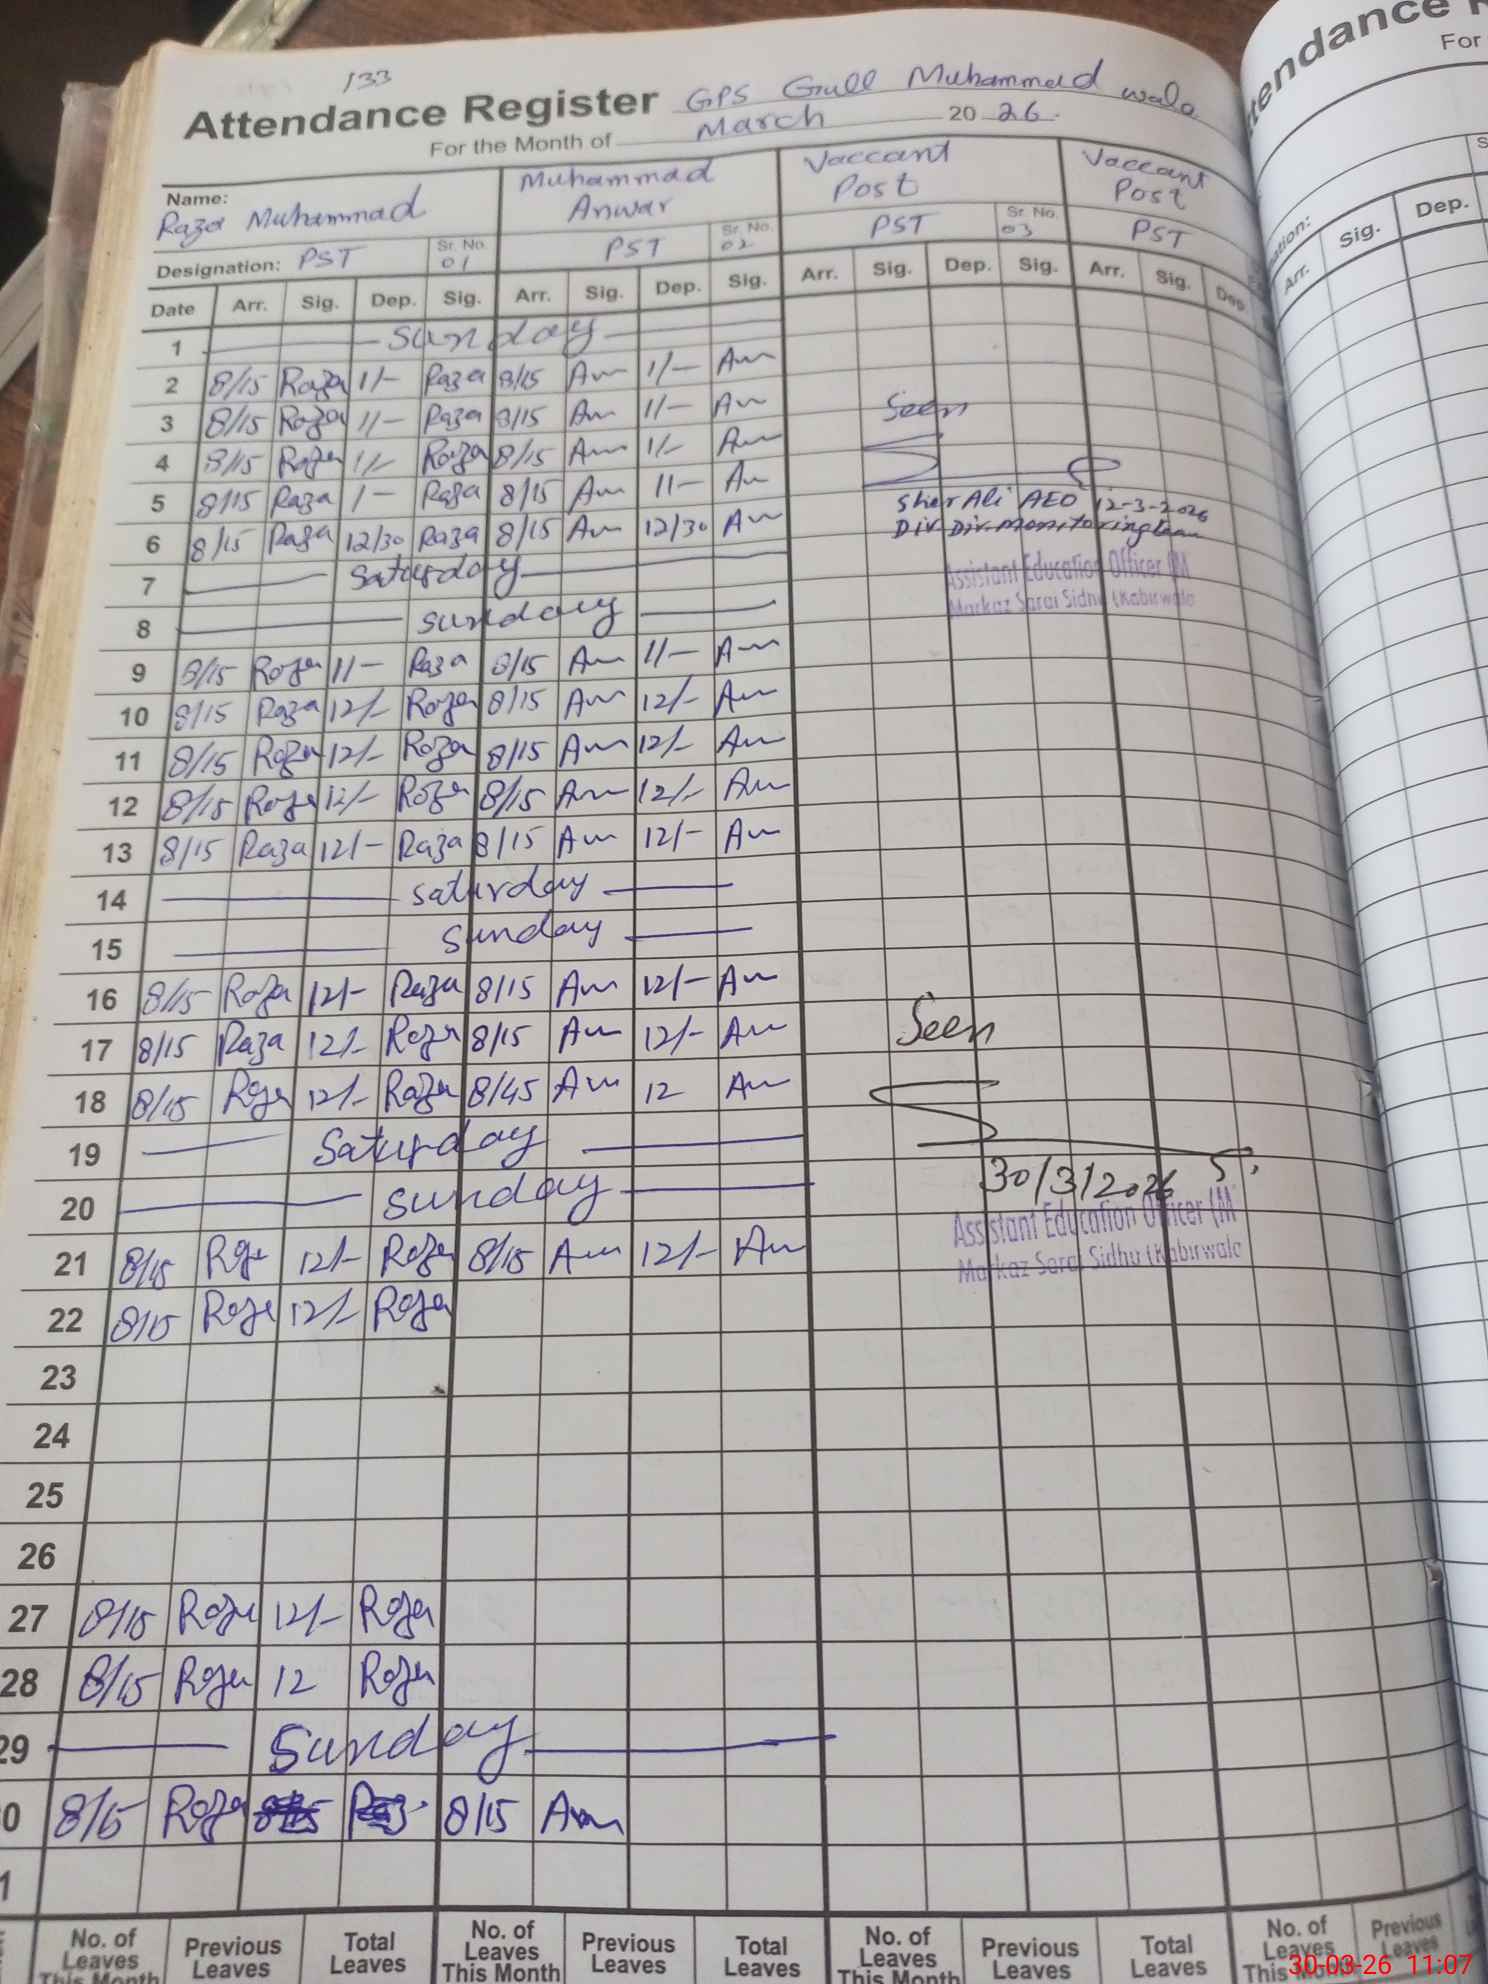 133
Attendance Register GPS Gull Muhammad wala
For the Month of March 2026.
Name: Raza Muhammad Muhammad Anwar Vaccant Post Vaccant Post
Designation: PST Sr. No. 01 PST Sr. No. 02 PST Sr. No. 03 PST
Date Arr. Sig. Dep. Sig. Arr. Sig. Dep. Sig. Arr. Sig. Dep. Sig. Arr. Sig. Dep
1 Sunday
2 8/15 Raza 1/- Raza 8/15 Am 1/- Am
3 8/15 Raza 11- Raza 8/15 Am 11- Am
4 8/15 Raza 1/- Raza 8/15 Am 1/- Am
5 8/15 Raza 1- Raza 8/15 Am 11- Am
6 8/15 Raza 12/30 Raza 8/15 Am 12/30 Am
7 Saturday
8 Sunday
9 8/15 Raza 11- Raza 8/15 Am 11- Am
10 8/15 Raza 12/- Raza 8/15 Am 12/- Am
11 8/15 Raza 12/- Raza 8/15 Am 12/- Am
12 8/15 Raza 12/- Raza 8/15 Am 12/- Am
13 8/15 Raza 12/- Raza 8/15 Am 12/- Am
14 Saturday
15 Sunday
16 8/15 Raza 12/- Raza 8/15 Am 12/- Am
17 8/15 Raza 12/- Raza 8/15 Am 12/- Am
18 8/15 Raza 12/- Raza 8/45 Am 12 Am
19 Saturday
20 Sunday
21 8/15 Raza 12/- Raza 8/15 Am 12/- Am
22 8/15 Raza 12/- Raza
23
24
25
26
27 8/15 Raza 12/- Raza
28 8/15 Raza 12 Raza
29 Sunday
0 8/15 Raza 8/15 Am
1
Seen
Sher Ali AEO 12-3-2026
Div. Dir. Monitoring
Assistant Education Officer (M
Markaz Sarai Sidhu (Kabirwala
Seen
30/3/2026
Assistant Education Officer (M
Markaz Sarai Sidhu (Kabirwala
No. of Leaves This Month Previous Leaves Total Leaves No. of Leaves This Month Previous Leaves Total Leaves No. of Leaves This Month Previous Leaves Total Leaves No. of Leaves This Previous Leaves
tendance R
For
ation:
Arr. Sig. Dep.
30-03-26 11:07